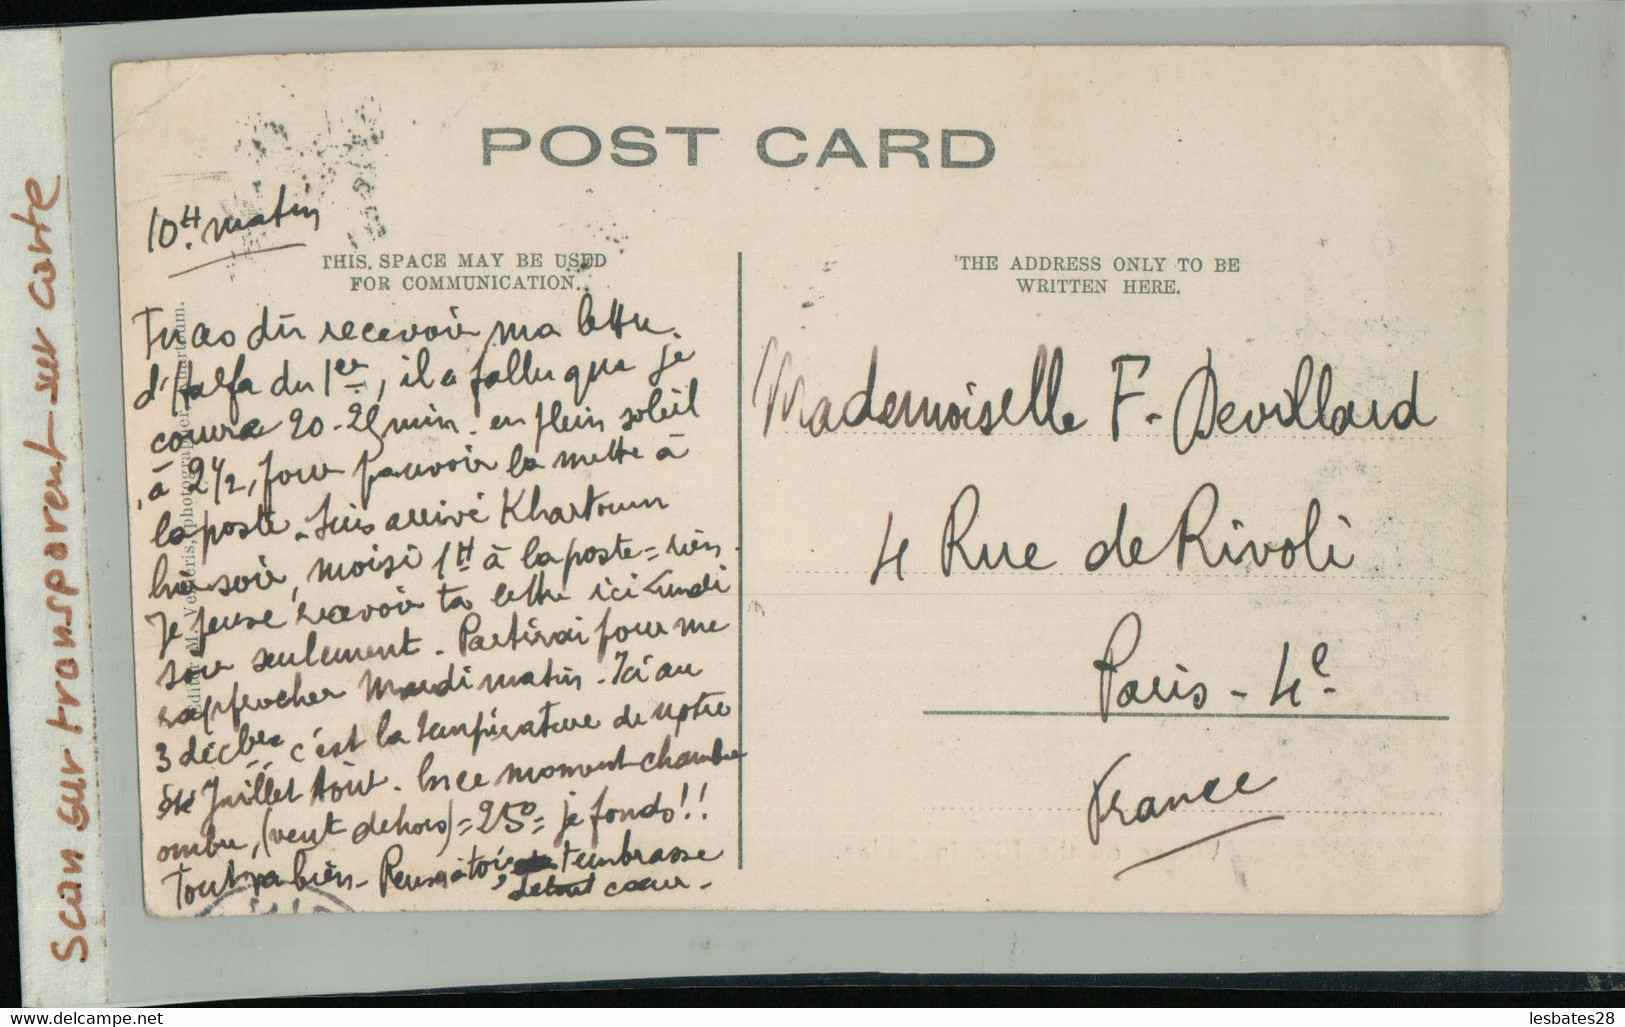 Scan sur transparent sur carte
POST CARD
10H. matin
THIS SPACE MAY BE USED
FOR COMMUNICATION.
THE ADDRESS ONLY TO BE
WRITTEN HERE.
Tu as dû recevoir ma lettre
d'Halfa du 1er, il a fallu que je
coure 20-25 min. en plein soleil
à 2½, pour pouvoir la mettre à
la poste. Suis arrivé Khartoum
hier soir, moisi 1H à la poste = rien.
Je pense recevoir ta lettre ici Lundi
soir seulement. Partirai pour me
rapprocher Mardi matin. Ici au
3 décbre c'est la température de notre
été Juillet Août. En ce moment chambre
ombre, (vent dehors) = 25° = je fonds!!
Tout va bien. Pensée à toi, t'embrasse
de tout cœur.
Editor M. Venieris, photographer, Khartoum.
Mademoiselle F. Devillard
4 Rue de Rivoli
Paris - 4e
France
www.delcampe.net
lesbates28